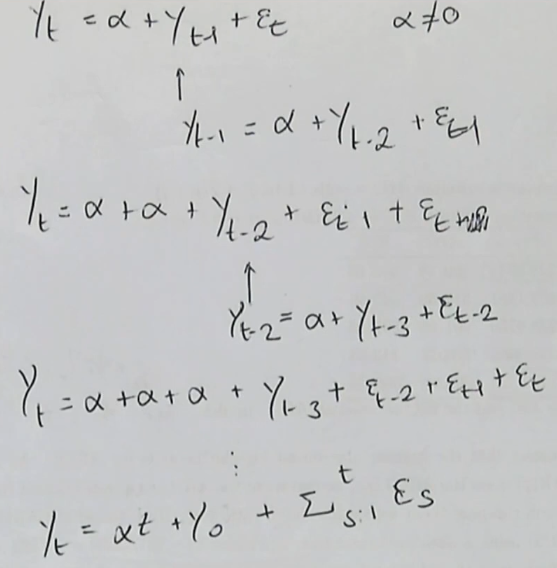 Yt = α + Yt-1 + εt α ≠ 0
↑
Yt-1 = α + Yt-2 + εt-1
Yt = α + α + Yt-2 + εt-1 + εt
↑
Yt-2 = α + Yt-3 + εt-2
Yt = α + α + α + Yt-3 + εt-2 + εt-1 + εt
⋮
Yt = αt + Y0 + Σ t s=1 εs